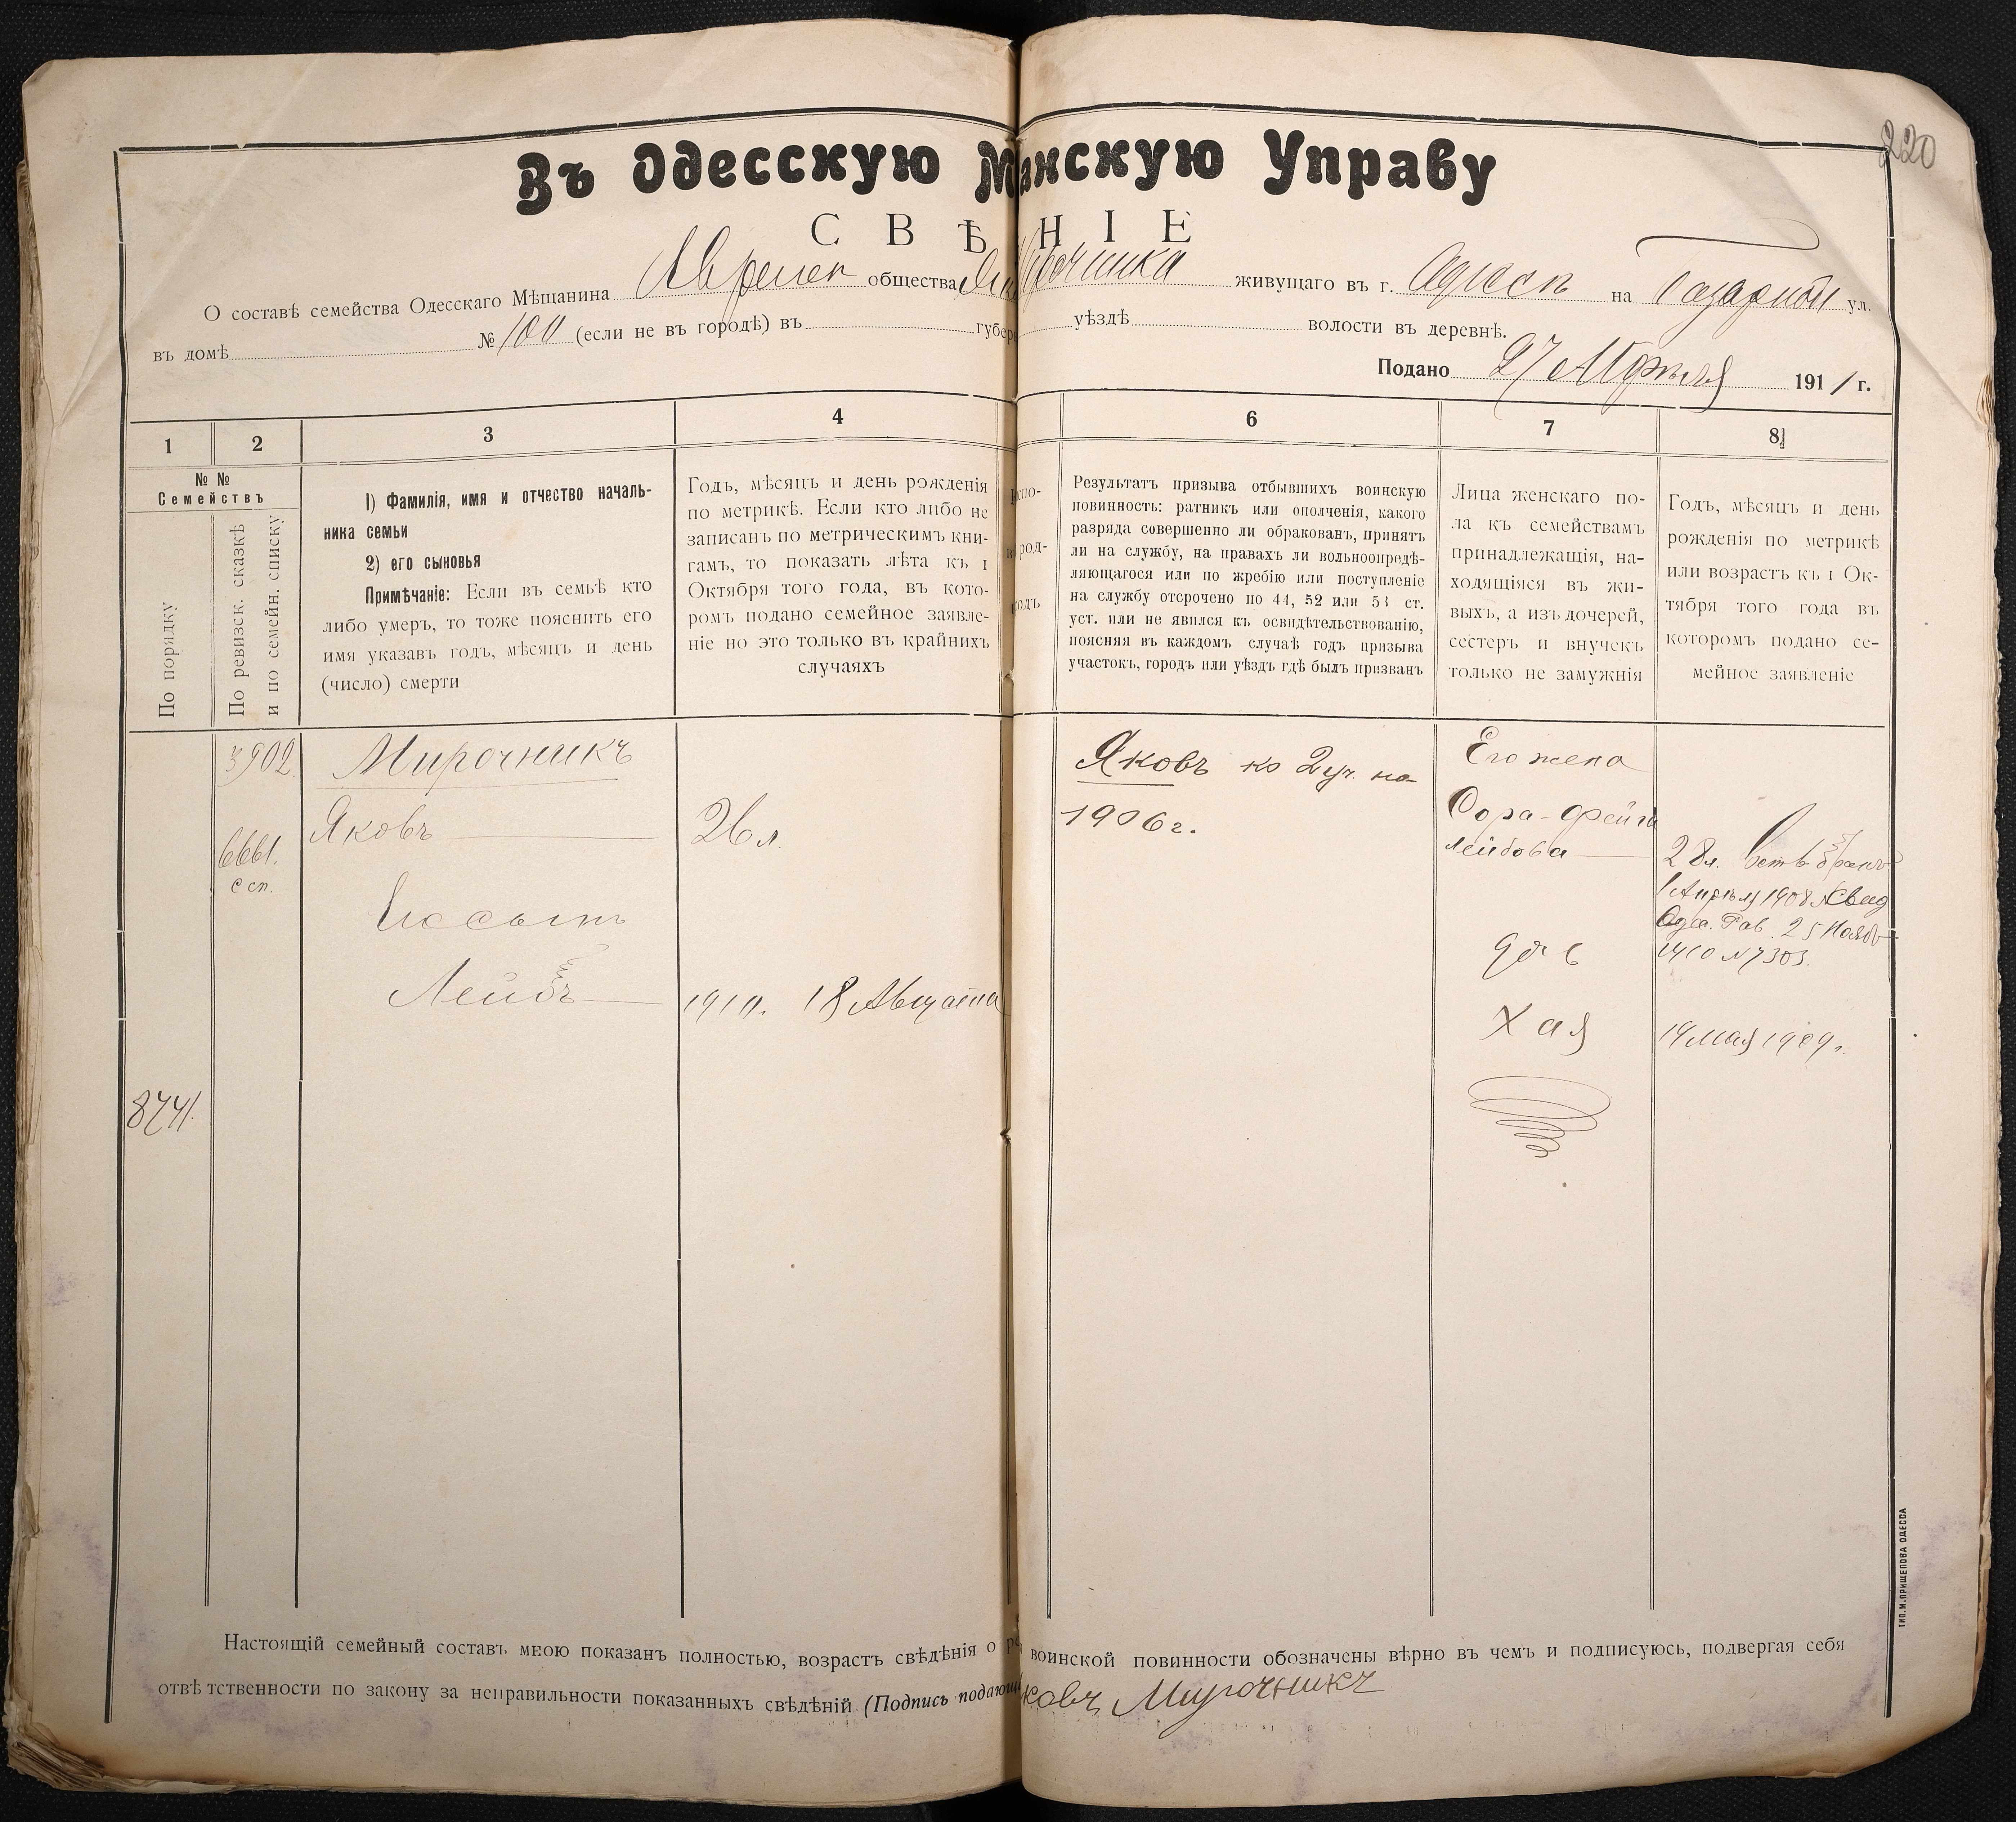 220
Въ Одесскую М анскую Управу
СВѢ НІЕ
О составѣ семейства Одесскаго Мѣщанина Яврееп общества Мирочника живущаго въ г. Одессѣ на Базарной ул.
въ домѣ № 100 (если не въ городѣ) въ губер уѣздѣ волости въ деревнѣ.
Подано 27 Апрѣля 1911 г.
1 2 3 4 6 7 8
№ №
Семействъ
По порядку
По ревизск. сказкѣ
и по семейн. списку
1) Фамилія, имя и отчество началь-
ника семьи
2) его сыновья
Примѣчаніе: Если въ семьѣ кто
либо умеръ, то тоже пояснить его
имя указавъ годъ, мѣсяцъ и день
(число) смерти
Годъ, мѣсяцъ и день рожденія
по метрикѣ. Если кто либо не
записанъ по метрическимъ кни-
гамъ, то показать лѣта къ 1
Октября того года, въ кото-
ромъ подано семейное заявле-
ніе но это только въ крайнихъ
случаяхъ
спо-
род-
одъ
Результатъ призыва отбывшихъ воинскую
повинность: ратникъ или ополченія, какого
разряда совершенно ли обракованъ, принятъ
ли на службу, на правахъ ли вольноопредѣ-
ляющагося или по жребію или поступленіе
на службу отсрочено по 44, 52 или 53 ст.
уст. или не явился къ освидѣтельствованію,
поясняя въ каждомъ случаѣ годъ призыва
участокъ, городъ или уѣздъ гдѣ былъ призванъ
Лица женскаго по-
ла къ семействамъ
принадлежащія, на-
ходящіяся въ жи-
выхъ, а изъ дочерей,
сестеръ и внучекъ
только не замужнія
Годъ, мѣсяцъ и день
рожденія по метрикѣ
или возрастъ къ 1 Ок-
тября того года въ
которомъ подано се-
мейное заявленіе
3902
Мирочникъ
Яковъ 26 л.
6661.
с сп.
Его сынъ
Лейбъ 1910. 18 Августа
8741.
Яковъ ко 2 уч. на
1906 г.
Его жена
Сора-Фейга
Лейбова
28 л. Вст. въ бракъ
1 Апрѣля 1908 Свид
Одес. Рав. 25 Нояб
1910 № 7303.
дочь
Хая 19 Мая 1909 г.
Настоящій семейный составъ мною показанъ полностью, возрастъ свѣдѣнія о воинской повинности обозначены вѣрно въ чемъ и подписуюсь, подвергая себя
отвѣтственности по закону за неправильности показанныхъ свѣдѣній (Подпись подающ ковъ Мирочникъ
ТИП. М. ПРИЩЕПОВА ОДЕССА